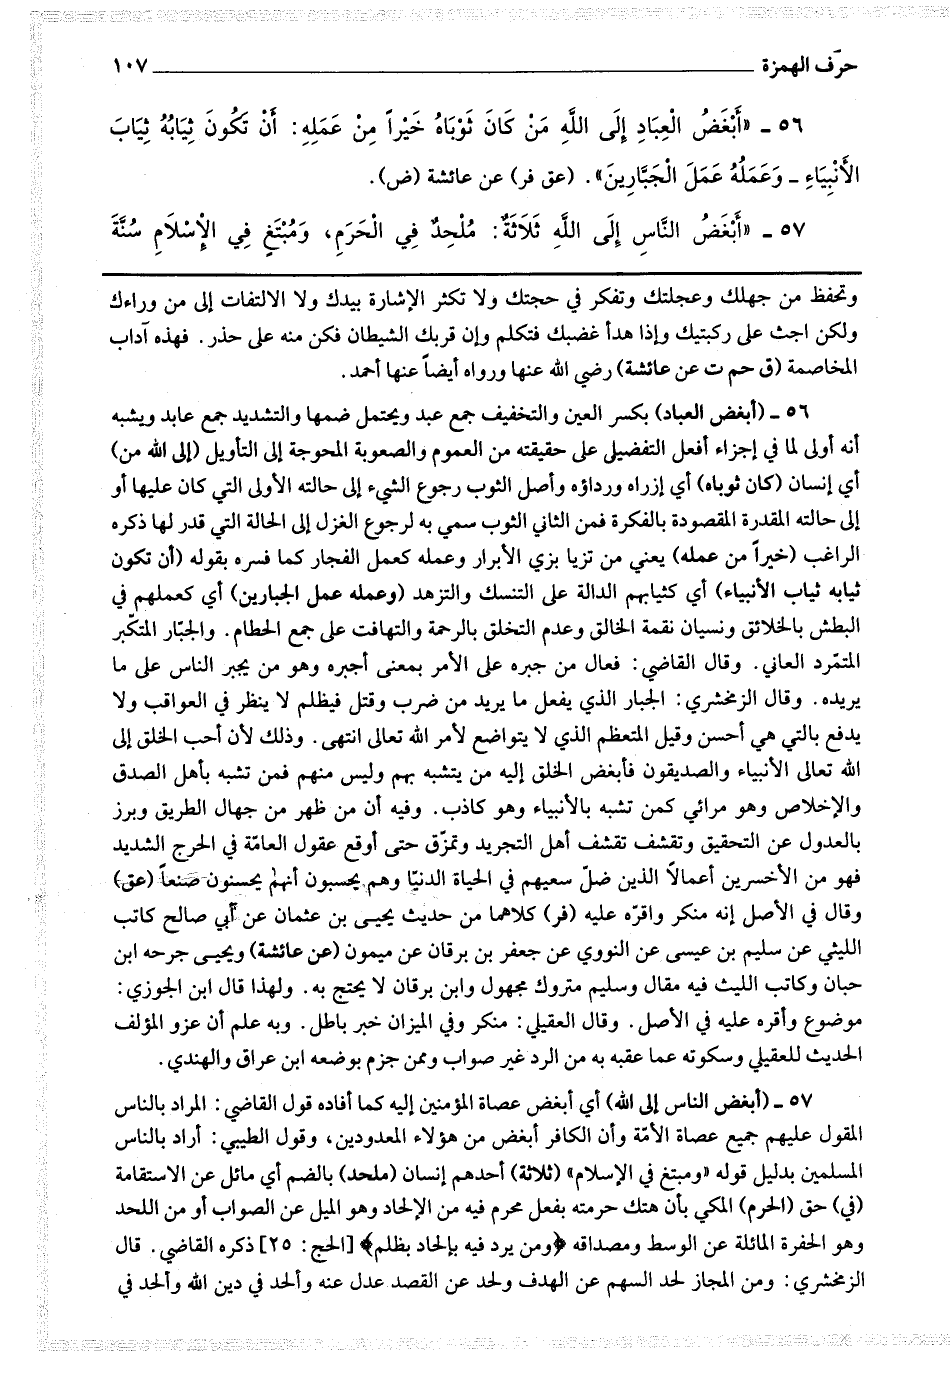 حرف الهمزة ١٠٧
٥٦ ـ «أَبْغَضُ الْعِبَادِ إِلَى اللَّهِ مَنْ كَانَ ثَوْبَاهُ خَيْراً مِنْ عَمَلِهِ: أَنْ تَكُونَ ثِيَابُهُ ثِيَابَ
الأَنْبِيَاءِ ـ وَعَمَلُهُ عَمَلَ الْجَبَّارِينَ». (عق فر) عن عائشة (ض).
٥٧ ـ «أَبْغَضُ النَّاسِ إِلَى اللَّهِ ثَلَاثَةٌ: مُلْحِدٌ فِي الْحَرَمِ، وَمُبْتَغٍ فِي الإِسْلَامِ سُنَّةَ
وتحفظ من جهلك وعجلتك وتفكر في حجتك ولا تكثر الإشارة بيدك ولا الالتفات إلى من وراءك
ولكن اجث على ركبتيك وإذا هدأ غضبك فتكلم وإن قربك الشيطان فكن منه على حذر. فهذه آداب
المخاصمة (ق حم ت عن عائشة) رضي الله عنها ورواه أيضاً عنها أحمد.
٥٦ ـ (أبغض العباد) بكسر العين والتخفيف جمع عبد ويحتمل ضمها والتشديد جمع عابد ويشبه
أنه أولى لما في إجزاء أفعل التفضيل على حقيقته من العموم والصعوبة المحوجة إلى التأويل (إلى الله من)
أي إنسان (كان ثوباه) أي إزراه ورداؤه وأصل الثوب رجوع الشيء إلى حالته الأولى التي كان عليها أو
إلى حالته المقدرة المقصودة بالفكرة فمن الثاني الثوب سمي به لرجوع الغزل إلى الحالة التي قدر لها ذكره
الراغب (خيراً من عمله) يعني من تزيا بزي الأبرار وعمله كعمل الفجار كما فسره بقوله (أن تكون
ثيابه ثياب الأنبياء) أي كثيابهم الدالة على التنسك والتزهد (وعمله عمل الجبارين) أي كعملهم في
البطش بالخلائق ونسيان نقمة الخالق وعدم التخلق بالرحمة والتهافت على جمع الحطام. والجبّار المتكبّر
المتمّرد العاني. وقال القاضي: فعال من جبره على الأمر بمعنى أجبره وهو من يجبر الناس على ما
يريده. وقال الزمخشري: الجبار الذي يفعل ما يريد من ضرب وقتل فيظلم لا ينظر في العواقب ولا
يدفع بالتي هي أحسن وقيل المتعظم الذي لا يتواضع لأمر الله تعالى انتهى. وذلك لأن أحب الخلق إلى
الله تعالى الأنبياء والصديقون فأبغض الخلق إليه من يتشبه بهم وليس منهم فمن تشبه بأهل الصدق
والإخلاص وهو مرائي كمن تشبه بالأنبياء وهو كاذب. وفيه أن من ظهر من جهال الطريق وبرز
بالعدول عن التحقيق وتقشف تقشف أهل التجريد وتمزّق حتى أوقع عقول العامّة في الحرج الشديد
فهو من الأخسرين أعمالاً الذين ضلّ سعيهم في الحياة الدنيّا وهم يحسبون أنهم يحسنون صنعاً (عق)
وقال في الأصل إنه منكر واقرّه عليه (فر) كلاهما من حديث يحيى بن عثمان عن أبي صالح كاتب
الليثي عن سليم بن عيسى عن النووي عن جعفر بن برقان عن ميمون (عن عائشة) ويحيى جرحه ابن
حبان وكاتب الليث فيه مقال وسليم متروك مجهول وابن برقان لا يحتج به. ولهذا قال ابن الجوزي:
موضوع وأقره عليه في الأصل. وقال العقيلي: منكر وفي الميزان خبر باطل. وبه علم أن عزو المؤلف
الحديث للعقيلي وسكوته عما عقبه به من الرد غير صواب وممن جزم بوضعه ابن عراق والهندي.
٥٧ ـ (أبغض الناس إلى الله) أي أبغض عصاة المؤمنين إليه كما أفاده قول القاضي: المراد بالناس
المقول عليهم جميع عصاة الأمّة وأن الكافر أبغض من هؤلاء المعدودين، وقول الطيبي: أراد بالناس
المسلمين بدليل قوله «ومبتغ في الإسلام» (ثلاثة) أحدهم إنسان (ملحد) بالضم أي مائل عن الاستقامة
(في) حق (الحرم) المكي بأن هتك حرمته بفعل محرم فيه من الإلحاد وهو الميل عن الصواب أو من اللحد
وهو الحفرة المائلة عن الوسط ومصداقه ﴿ومن يرد فيه بإلحاد بظلم﴾ [الحج: ٢٥] ذكره القاضي. قال
الزمخشري: ومن المجاز لحد السهم عن الهدف ولحد عن القصد عدل عنه وألحد في دين الله وألحد في